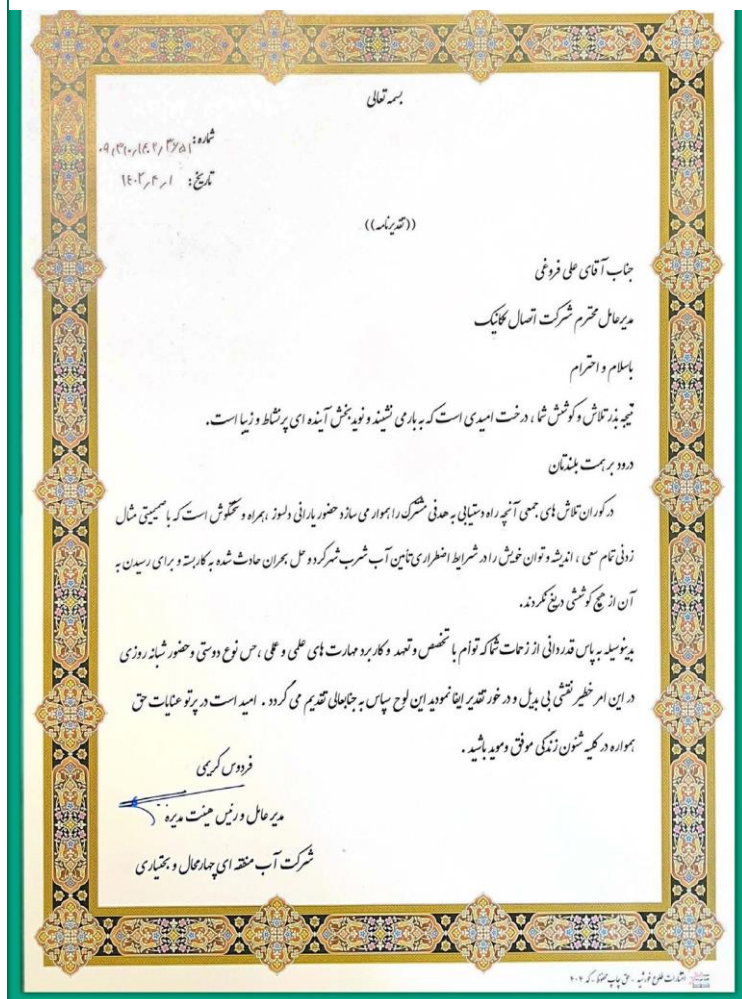 بسمه تعالی
شماره: ۰۹/۳۰/۱۴۰۲/۳۶۵۱
تاریخ: ۱۴۰۲/۴/۱
((تقدیرنامه))
جناب آقای علی فروغی
مدیرعامل محترم شرکت اتصال مکانیک
باسلام و احترام
نتیجه بذر تلاش و کوشش شما، درخت امیدی است که به بار می نشیند و نوید بخش آینده ای پر نشاط و زیبا است.
درود بر همت بلندتان
در کوران تلاش های جمعی آنچه راه دستیابی به هدفی مشترک را هموار می سازد حضور یارانی دلسوز، همراه و سختکوش است که با صمیمیتی مثال
زدنی تمام سعی، اندیشه و توان خویش را در شرایط اضطراری تامین آب شرب شهرکرد و حل بحران حادث شده به کار بسته و برای رسیدن به
آن از هیچ کوششی دریغ نکردند.
بدینوسیله به پاس قدردانی از زحمات شما که توأم با تخصص و تعهد و کاربرد مهارت های علمی و عملی، حس نوع دوستی و حضور شبانه روزی
در این امر خطیر نقشی بی بدیل و در خور تقدیر ایفا نمودید این لوح سپاس به جنابعالی تقدیم می گردد. امید است در پرتو عنایات حق
همواره در کلیه شئون زندگی موفق و موید باشید.
فردوس کریمی
مدیر عامل و رئیس هیئت مدیره
شرکت آب منطقه ای چهارمحال و بختیاری
انتشارات طلوع خورشید - حق چاپ محفوظ - کد ۴۰۴